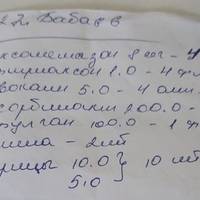 22. Бабаев
ксаметазон 8 мг - 4
риаксон 1.0 - 4 фл
вокаин 5.0 - 4 амп.
сорбилакт 200.0 -
фулган 100.0 - 1 ф
- 2шт
рицы 10.0 } 10 шт
5.0